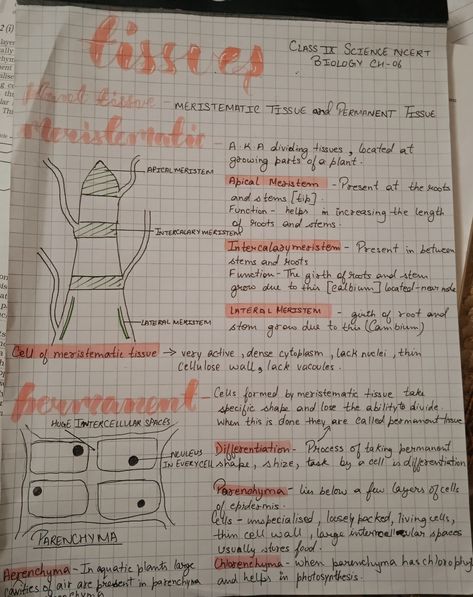 tissues
CLASS IX SCIENCE NCERT
BIOLOGY CH-06
plant tissue - MERISTEMATIC TISSUE and PERMANENT TISSUE
Meristematic - A.K.A dividing tissues, located at
growing parts of a plant.
Apical Meristem - Present at the roots
and stems [tip].
Function - helps in increasing the length
of roots and stems.
Intercalary meristem - Present in between
stems and roots
Function - The girth of roots and stem
grow due to this [calbium] located - near node
LATERAL MERISTEM - girth of root and
stem grow due to this (Cambium)
APICAL MERISTEM
INTERCALARY MERISTEM
LATERAL MERISTEM
Cell of meristematic tissue → very active, dense cytoplasm, lack nuclei, thin
cellulose wall, lack vacoules.
permanent - Cells formed by meristematic tissue take
specific shape and lose the ability to divide
when this is done they are called permanent tissue
HUGE INTERCELLULAR SPACES
NUULEUS
IN EVERY CELL
PARENCHYMA
Differentiation - Process of taking permanent
shape, shize, task by a cell is differentiation
Parenchyma - lies below a few layers of cells
of epidermis.
Cells - unspecialised, loosely packed, living cells,
thin cell wall, large intercellular spaces
usually stores food.
Aerenchyma - In aquatic plants large
cavities of air are present in parenchyma
Chlorenchyma - when parenchyma has chloroph
and helps in photosynthesis.